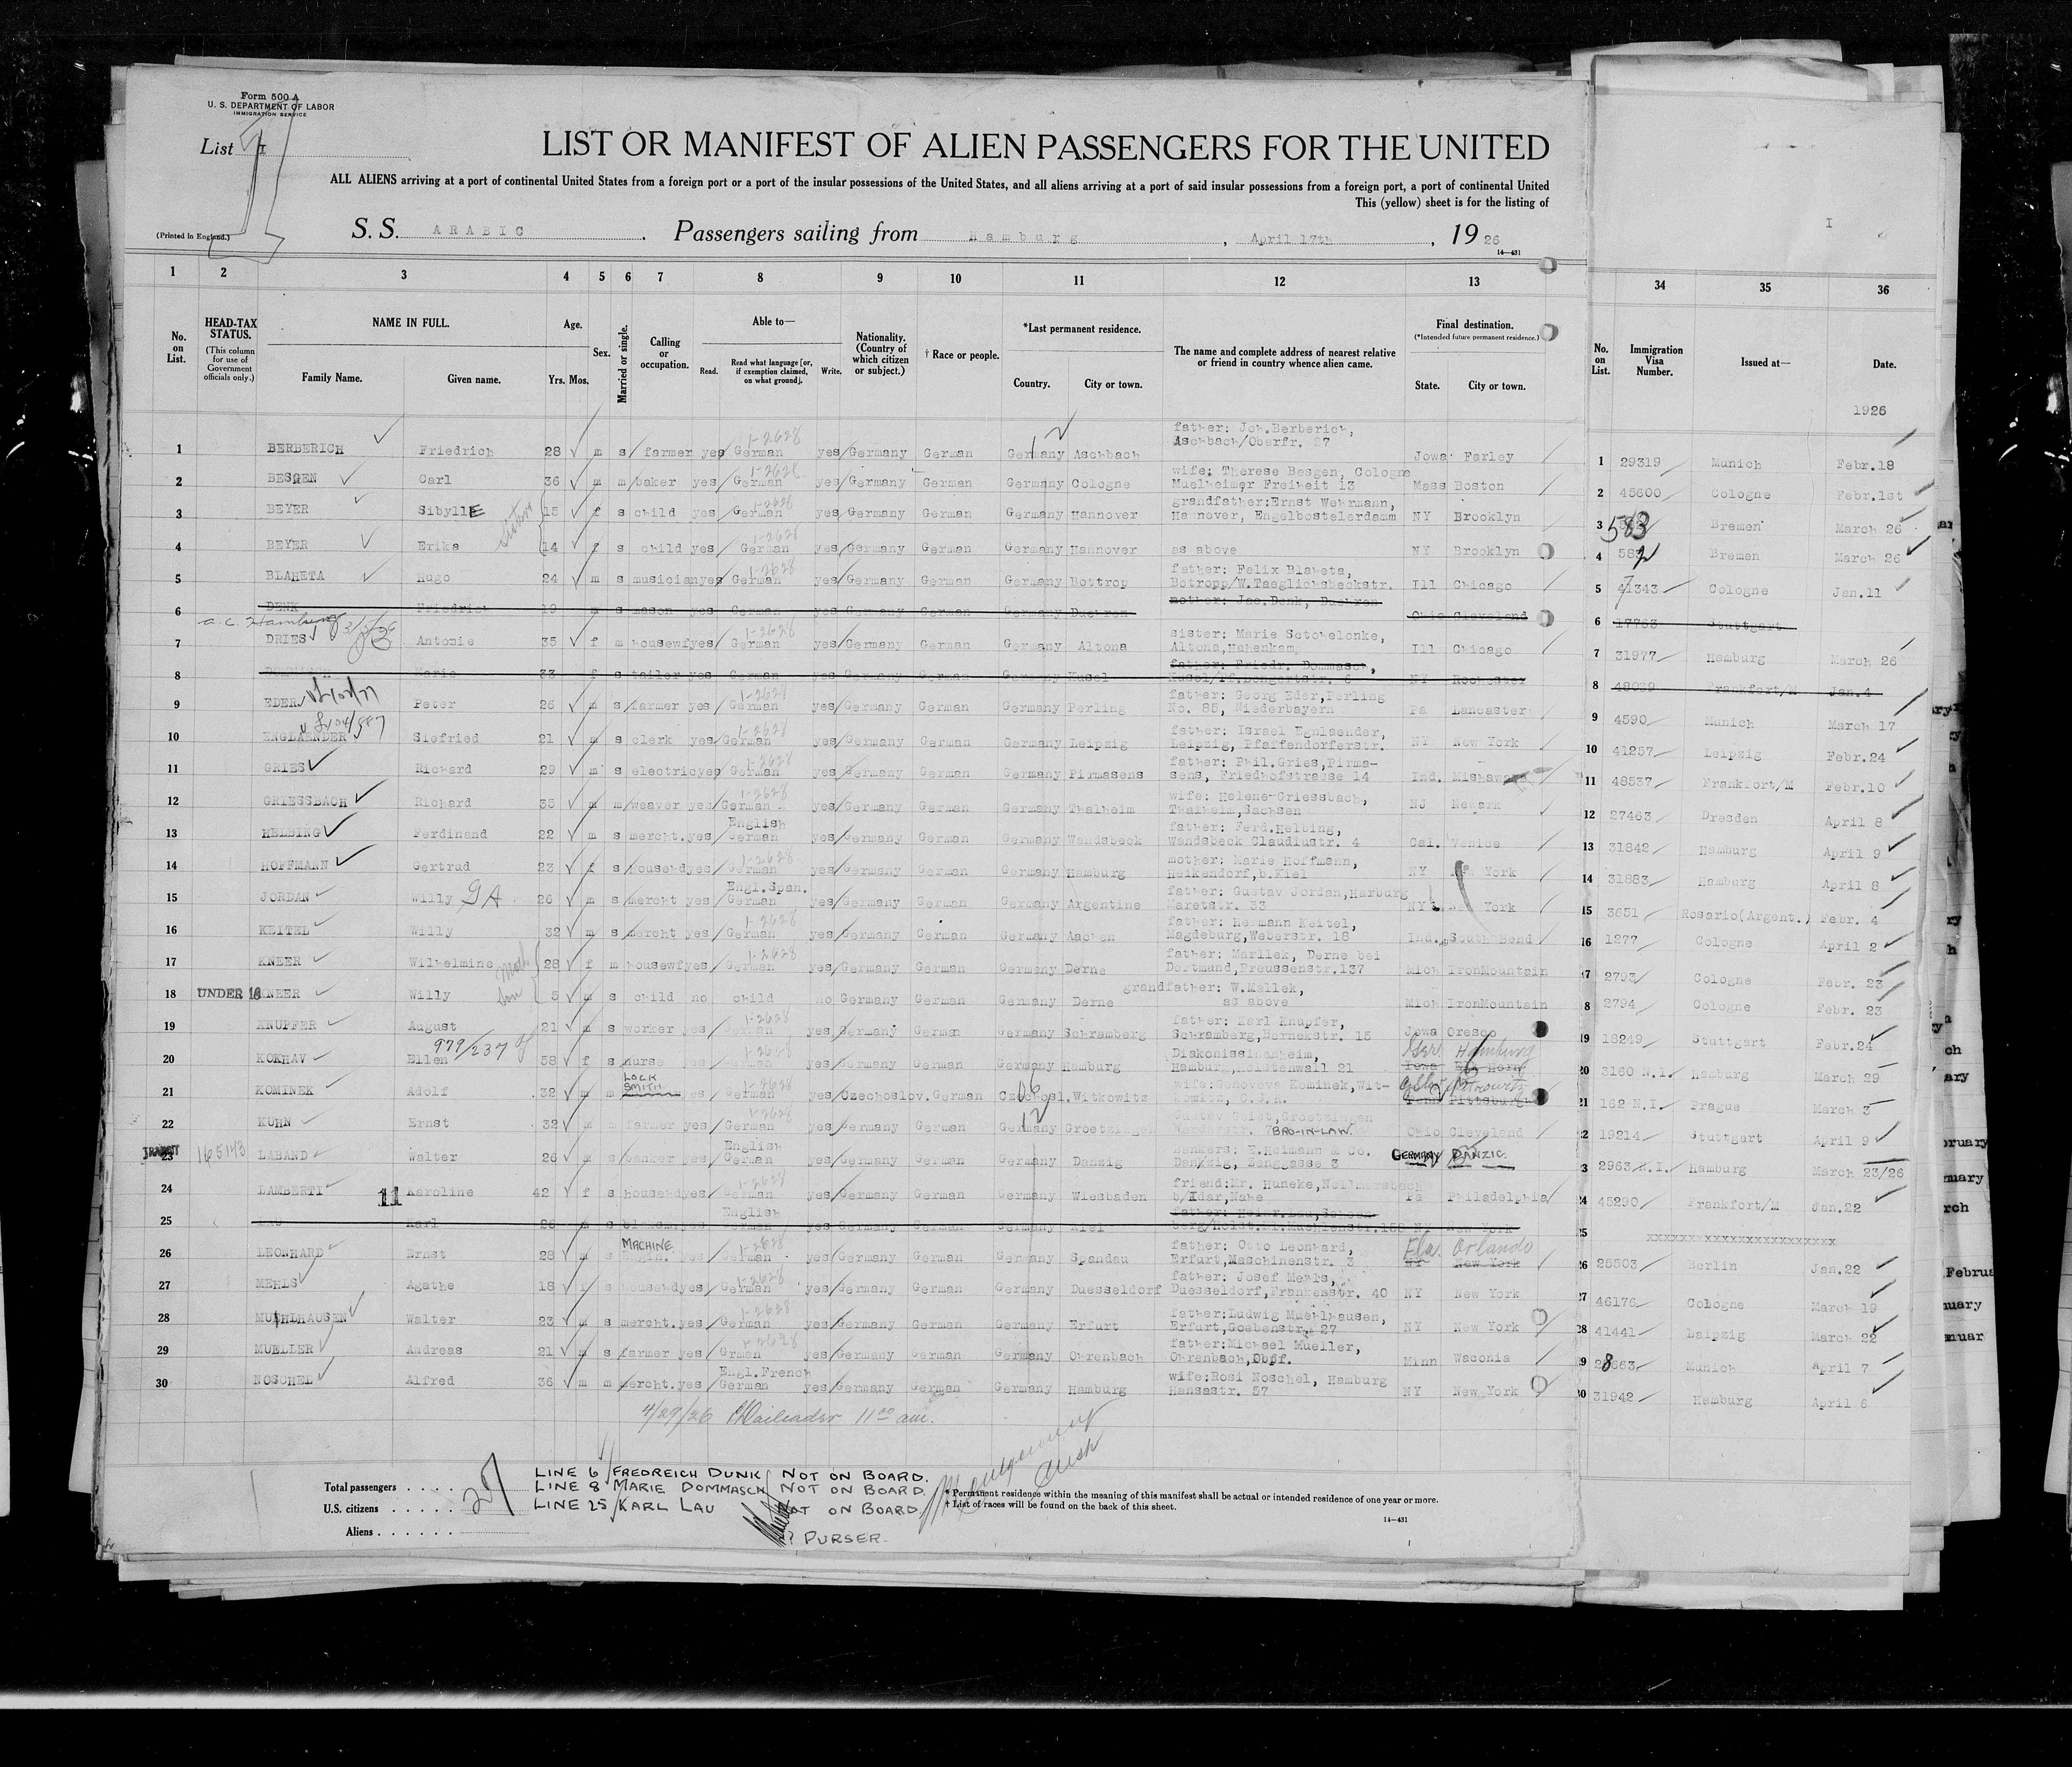 Form 500 A
U. S. DEPARTMENT OF LABOR
IMMIGRATION SERVICE
List I
LIST OR MANIFEST OF ALIEN PASSENGERS FOR THE UNITED
ALL ALIENS arriving at a port of continental United States from a foreign port or a port of the insular possessions of the United States, and all aliens arriving at a port of said insular possessions from a foreign port, a port of continental United
This (yellow) sheet is for the listing of
(Printed in England.)
S. S. ARABIC, Passengers sailing from Hamburg, April 17th, 1926
14—431
I
1 2 3 4 5 6 7 8 9 10 11 12 13 34 35 36
No. on List.
HEAD-TAX STATUS.
(This column for use of Government officials only.)
NAME IN FULL.
Family Name. Given name.
Age.
Yrs. Mos.
Sex.
Married or single.
Calling or occupation.
Able to—
Read. Read what language [or, if exemption claimed, on what ground]. Write.
Nationality. (Country of which citizen or subject.)
† Race or people.
*Last permanent residence.
Country. City or town.
The name and complete address of nearest relative or friend in country whence alien came.
Final destination.
(*Intended future permanent residence.)
State. City or town.
No. on List.
Immigration Visa Number.
Issued at—
Date.
1926
1 BERBERICH Friedrich 28 m s farmer yes German 1-2628 yes Germany German Germany Aschbach father: Joh.Berberich, Aschbach/Oberfr. 27 Jowa Farley 1 29319 Munich Febr.18
2 BESGEN Carl 36 m m baker yes German 1-2628 yes Germany German Germany Cologne wife: Therese Besgen, Cologne Muelheimer Freiheit 13 Mass Boston 2 45600 Cologne Febr.1st
3 BEYER SibyllE sisters 15 f s child yes German 1-2628 yes Germany German Germany Hannover grandfather:Ernst Wehrmann, Hannover, Engelbostelerdamm NY Brooklyn 3 583 Bremen March 26
4 BEYER Erika 14 f s child yes German 1-2628 yes Germany German Germany Hannover as above NY Brooklyn 4 582 Bremen March 26
5 BLAHETA Hugo 24 m s musician yes German 1-2628 yes Germany German Germany Bottrop father: Felix Blaheta, Botropp/W.Taeglichsbeckstr. Ill Chicago 5 41343 Cologne Jan.11
6 DENK Friedrich 19 m s mason yes German yes Germany German Germany Duehren mother: Jac.Denk, Duehren Ohio Cleveland 6 17763 Stuttgart
a.c. Hamburg
7 DRIES Antonie 35 f m housewf yes German 1-2628 yes Germany German Germany Altona sister: Marie Altona,Hakenkamp Ill Chicago 7 31977 Hamburg March 26
8 DOMMASCH Marie 33 f s tailor yes German yes Germany German Germany Kusel father: Friedr. Dommasch, NY Rochester 8 48039 Frankfort/M Jan.4
9 EDER Peter 26 m s farmer yes German 1-2628 yes Germany German Germany Perling father: Georg Eder,Perling No. 85, Niederbayern Pa Lancaster 9 4590 Munich March 17
10 ENGLAENDER Siefried 21 m s clerk yes German 1-2628 yes Germany German Germany Leipzig father: Israel Egnlaender, Leipzig, Pfaffendorferstr. NY New York 10 41257 Leipzig Febr.24
11 GRIES Richard 29 m s electric yes German 1-2628 yes Germany German Germany Pirmasens father: Phil.Gries,Pirmasens, Friedhofstrasse 14 Ind. Mishawaka 11 48537 Frankfort/M Febr.10
12 GRIESSBACH Richard 35 m m weaver yes German 1-2628 yes Germany German Germany Thalheim wife: Helene-Griessbach, Thalheim,Sachsen NJ Newark 12 27463 Dresden April 8
13 HELBING Ferdinand 22 m s mercht. yes English German yes Germany German Germany Wandsbeck father: Ferd.Helbing, Wandsbeck Claudiustr. 4 Cal. Venice 13 31842 Hamburg April 9
14 HOFFMANN Gertrud 23 f s househd yes German 1-2628 yes Germany German Germany Hamburg mother: Marie Hoffmann, Heikendorf,b.Kiel NY New York 14 31883 Hamburg April 8
15 JORDAN Willy GA 26 m s mercht yes Engl.Span. German yes Germany German Germany Argentine father: Gustav Jordan,Harburg Maretstr. 33 NY New York 15 3651 Rosario(Argent.) Febr. 4
16 KEITEL Willy 32 m s mercht yes German 1-2628 yes Germany German Germany Aachen father: Hermann Keitel, Magdeburg,Weberstr. 18 Ind. South Bend 16 1277 Cologne April 2
17 KNEER Wilhelmine 28 f m housewf yes German 1-2628 yes Germany German Germany Derne father: Marllek, Derne bei Dortmund,Preussenstr.137 Mich IronMountain 17 2793 Cologne Febr. 23
18 UNDER 16 KNEER Willy son 5 m s child no child no Germany German Germany Derne grandfather: W.Mallek, as above Mich IronMountain 8 2794 Cologne Febr. 23
19 KNUPFER August 21 m s worker yes German 1-2628 yes Germany German Germany Schramberg father: Karl Knupfer, Schramberg,Bernekstr. 15 Jowa Oresco 19 18249 Stuttgart Febr.24
979/237
20 KOKHAV Ellen 58 f s nurse yes German 1-2628 yes Germany German Germany Hamburg Diakonissinenheim, Hamburg,Holstenwall 21 Ger. Hamburg Iowa Elk Horn 20 3160 N.I. Hamburg March 29
21 KOMINEK Adolf 32 m m LOCK SMITH yes German 1-2628 yes Czechoslov. German Czechosl. Witkowitz wife:Genoveva Kominek,Witkowitz, C.S.R. Penn Pittsburgh 21 162 N.I. Prague March 3
22 KUHN Ernst 32 m m farmer yes German 1-2628 yes Germany German Germany Groetzingen Gustav Geist,Groetzingen BRO-IN-LAW. Ohio Cleveland 22 19214 Stuttgart April 9
TRANSIT 23 165143 LABAND Walter 26 m s banker yes English German yes Germany German Germany Danzig bankers: E.Heimann & Co. Danzig, Langgasse 3 GERMANY DANZIG 3 2963 N.I. Hamburg March 23/26
24 LAMBERTI 11 Karoline 42 f s househd yes German 1-2628 yes Germany German Germany Wiesbaden friend:Mr. Huneke, b/Idar,Nahe Pa Philadelphia 24 45290 Frankfort/M Jan.22
25 LAU Karl 26 m s yes English German yes Germany German Germany Kiel NY New York 25 xxxxxxxxxxxxxxxxxxxxxxx
26 LEONHARD Ernst 28 m s MACHINE Engin. yes German 1-2628 yes Germany German Germany Spandau father: Otto Leonhard, Erfurt,Maschinenstr. 3 Fla. Orlando NY New York 26 25503 Berlin Jan.22
27 MEHLS Agathe 18 f s househd yes German 1-2628 yes Germany German Germany Duesseldorf father: Josef Mehls, Duesseldorf,Frankenstr. 40 NY New York 27 46176 Cologne March 19
28 MUEHLHAUSEN Walter 23 m s mercht. yes German 1-2628 yes Germany German Germany Erfurt father:Ludwig Muehlhausen, Erfurt,Goebenstr. 27 NY New York 28 41441 Leipzig March 22
29 MUELLER Andreas 21 m s farmer yes Grman 1-2628 yes Germany German Germany Ohrenbach father:Michael Mueller, Ohrenbach,Obff. Minn Waconia 29 28863 Munich April 7
30 NOSCHEL Alfred 36 m m mercht. yes Engl.French German yes Germany German Germany Hamburg wife:Rosi Noschel, Hamburg Hansastr. 57 NY New York 30 31942 Hamburg April 6
4/29/26 11 00 am.
Total passengers
U.S. citizens
Aliens
27
LINE 6 FREDREICH DUNK NOT ON BOARD.
LINE 8 MARIE DOMMASCH NOT ON BOARD.
LINE 25 KARL LAU NOT ON BOARD.
PURSER.
* Permanent residence within the meaning of this manifest shall be actual or intended residence of one year or more.
† List of races will be found on the back of this sheet.
14—431